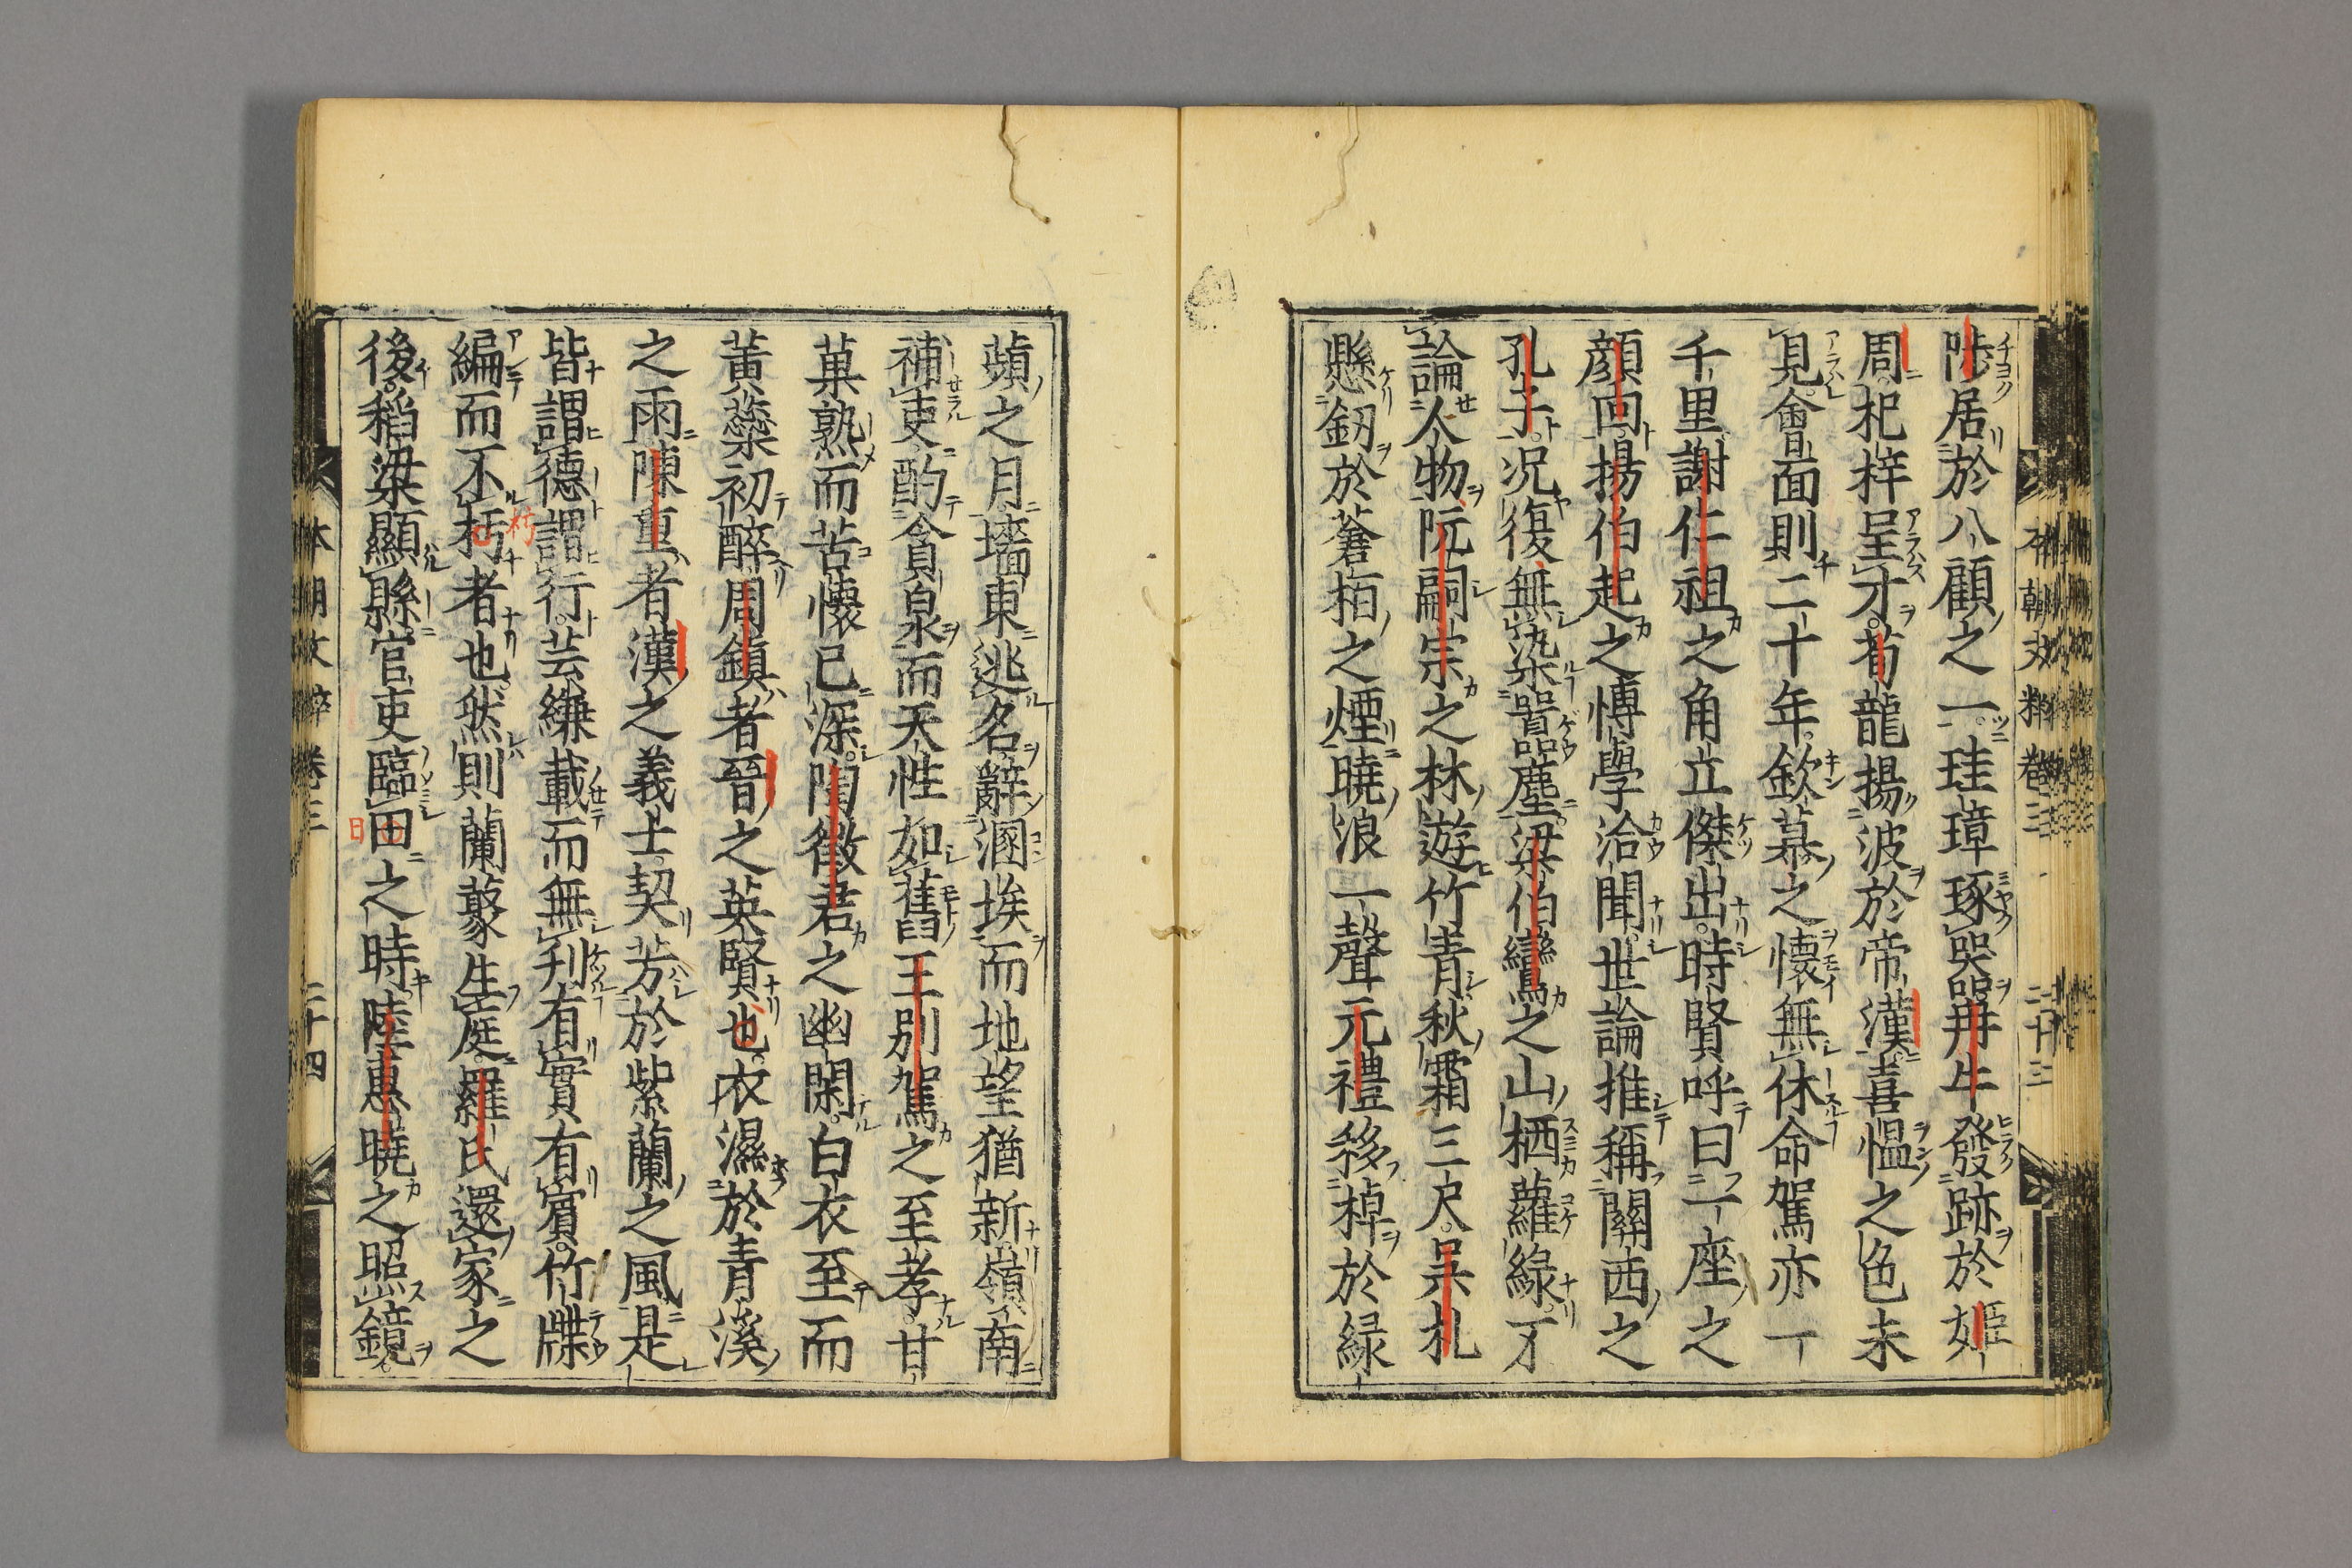 陟居於八顧之一珪璋琢器冉牛發跡於姬
周杞梓呈才荀龍揚波於帝漢喜慍之色未
見會面則二十年欽慕之懷無休命駕亦一
千里謝仁祖之角立傑出時賢呼曰一座之
顔回揚伯起之博學洽聞世論推稱關西之
孔子况復無染囂塵梁伯鸞之山栖蘿緑不
論人物阮嗣宗之林遊竹青秋霜三尺呉札
懸釼於蒼栢之煙曉浪一聲元禮移棹於緑
蘋之月墻東逃名辭溷埃而地望猶新嶺南
補吏酌貪泉而天性如舊王別駕之至孝甘
菓熟而苦懷已深陶徴君之幽閑白衣至而
黄蘂初醉周鎮者晉之英賢也衣濕於青溪
之雨陳重者漢之義士契芳於紫蘭之風是
皆謂德謂行芸縑載而無刋有實有賓竹牒
編而不朽者也然則蘭藂生庭羅氏還家之
後稻梁顯縣官吏臨田之時陸惠曉之照鏡
本朝文粹卷三 二十三
本朝文粹卷三 二十四